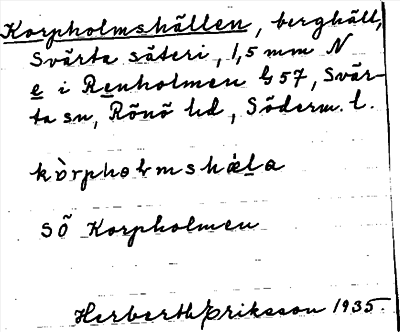 Korpholmshällen, berghäll,
Svärta säteri, 1,5 mm N
e i Renholmen G 57, Svär-
ta sn, Rönö hd, Söderm. l.
kòrphoɫmshäla
SÖ Korpholmen
Herberth Eriksson 1935.